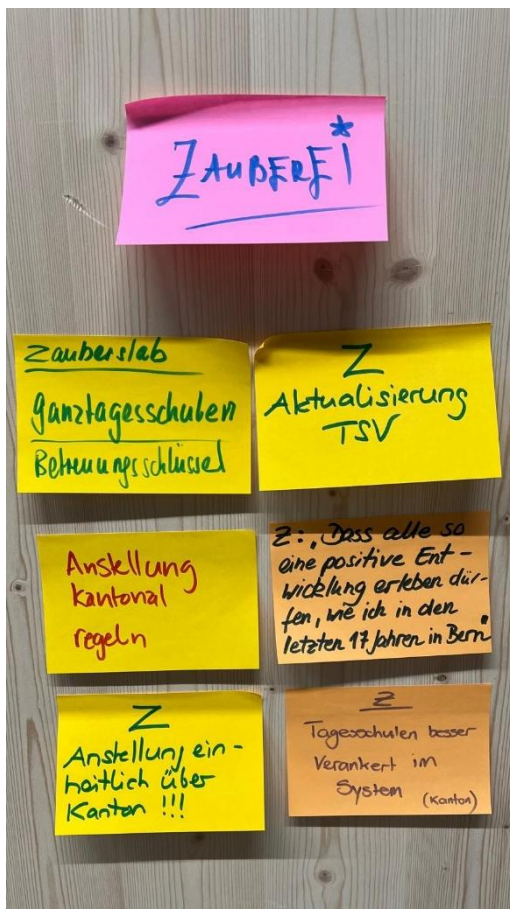 ZAUBEREI*
Zauberslab
Ganztagesschulen
Betreuungsschlüssel
Z
Aktualisierung
TSV
Anstellung
kantonal
regeln
Z: „Dass alle so
eine positive Ent-
wicklung erleben dür-
fen, wie ich in den
letzten 17 Jahren in Bern"
Z
Anstellung ein-
heitlich über
Kanton !!!
Z
Tagesschulen besser
Verankert im
System (Kanton)